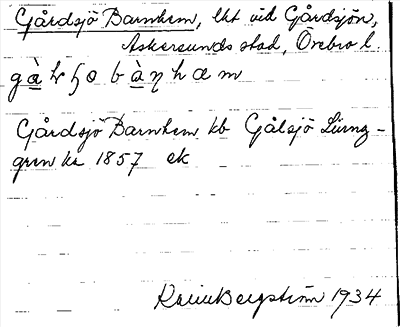 Gårdsjö Barnhem, lht vid Gårdsjön,
Askersunds stad, Örebro l.
Gårdsjö Barnhem kb Gålsjö
1857 ek
Karin Bergström 1934